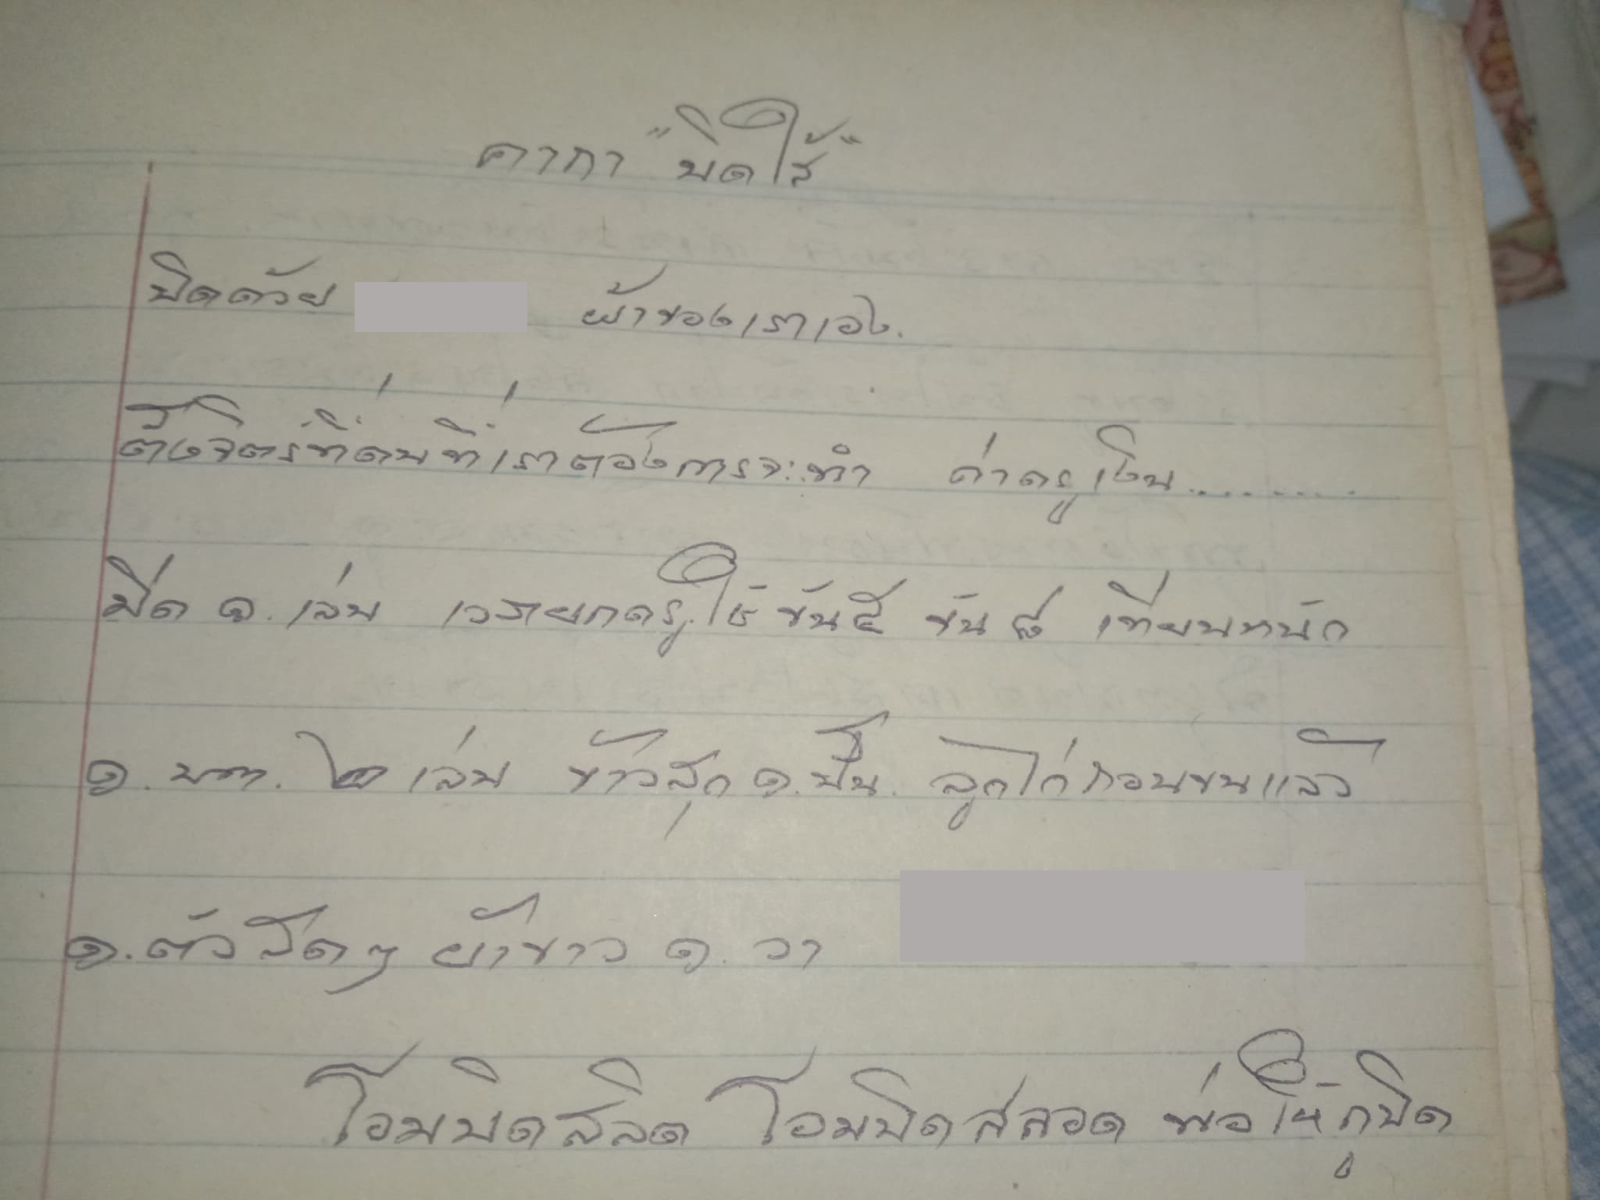 คาถา "บิดไส้"
บิดด้วย ผ้าของเราเอง.
ตั้งจิตร์ที่คนที่เราต้องการจะทำ ค่าครูเงิน.........
มีด ๑. เล่ม เวรายกครูให้ ขัน๕ ขัน ๘ เทียนหนัก
๑. บาท. ๒ เล่ม ข้าวสุก ๑. ปั้น. ลูกไก่ถอนขนแล้ว
๑. ตัว สดๆ ผ้าขาว ๑. วา
โอมบิดสลิด โอมบิดสลอด พ่อให้กูบิด